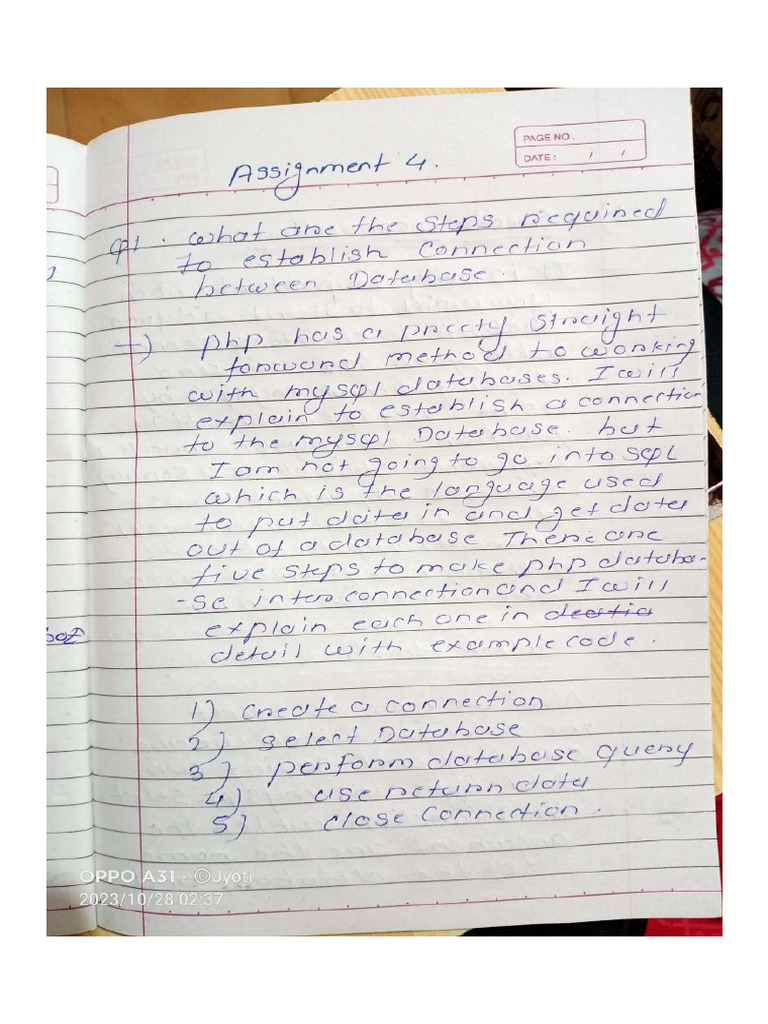 PAGE NO.
DATE: / /
Assignment 4.
Q1. What are the steps required
to establish connection
between Database.
→) php has a preety straight
forward method to working
with mysql databases. I will
explain to establish a connection
to the mysql Database. but
I am not going to go into SQL
which is the language used
to put data in and get data
out of a database There are
five steps to make php databa-
-se interconnection and I will
explain each one in
detail with example code.
1) Create a connection
2) Select Database
3) perform database query
4) use return data
5) close connection.
OPPO A31 · ©Jyoti
2023/10/28 02:37